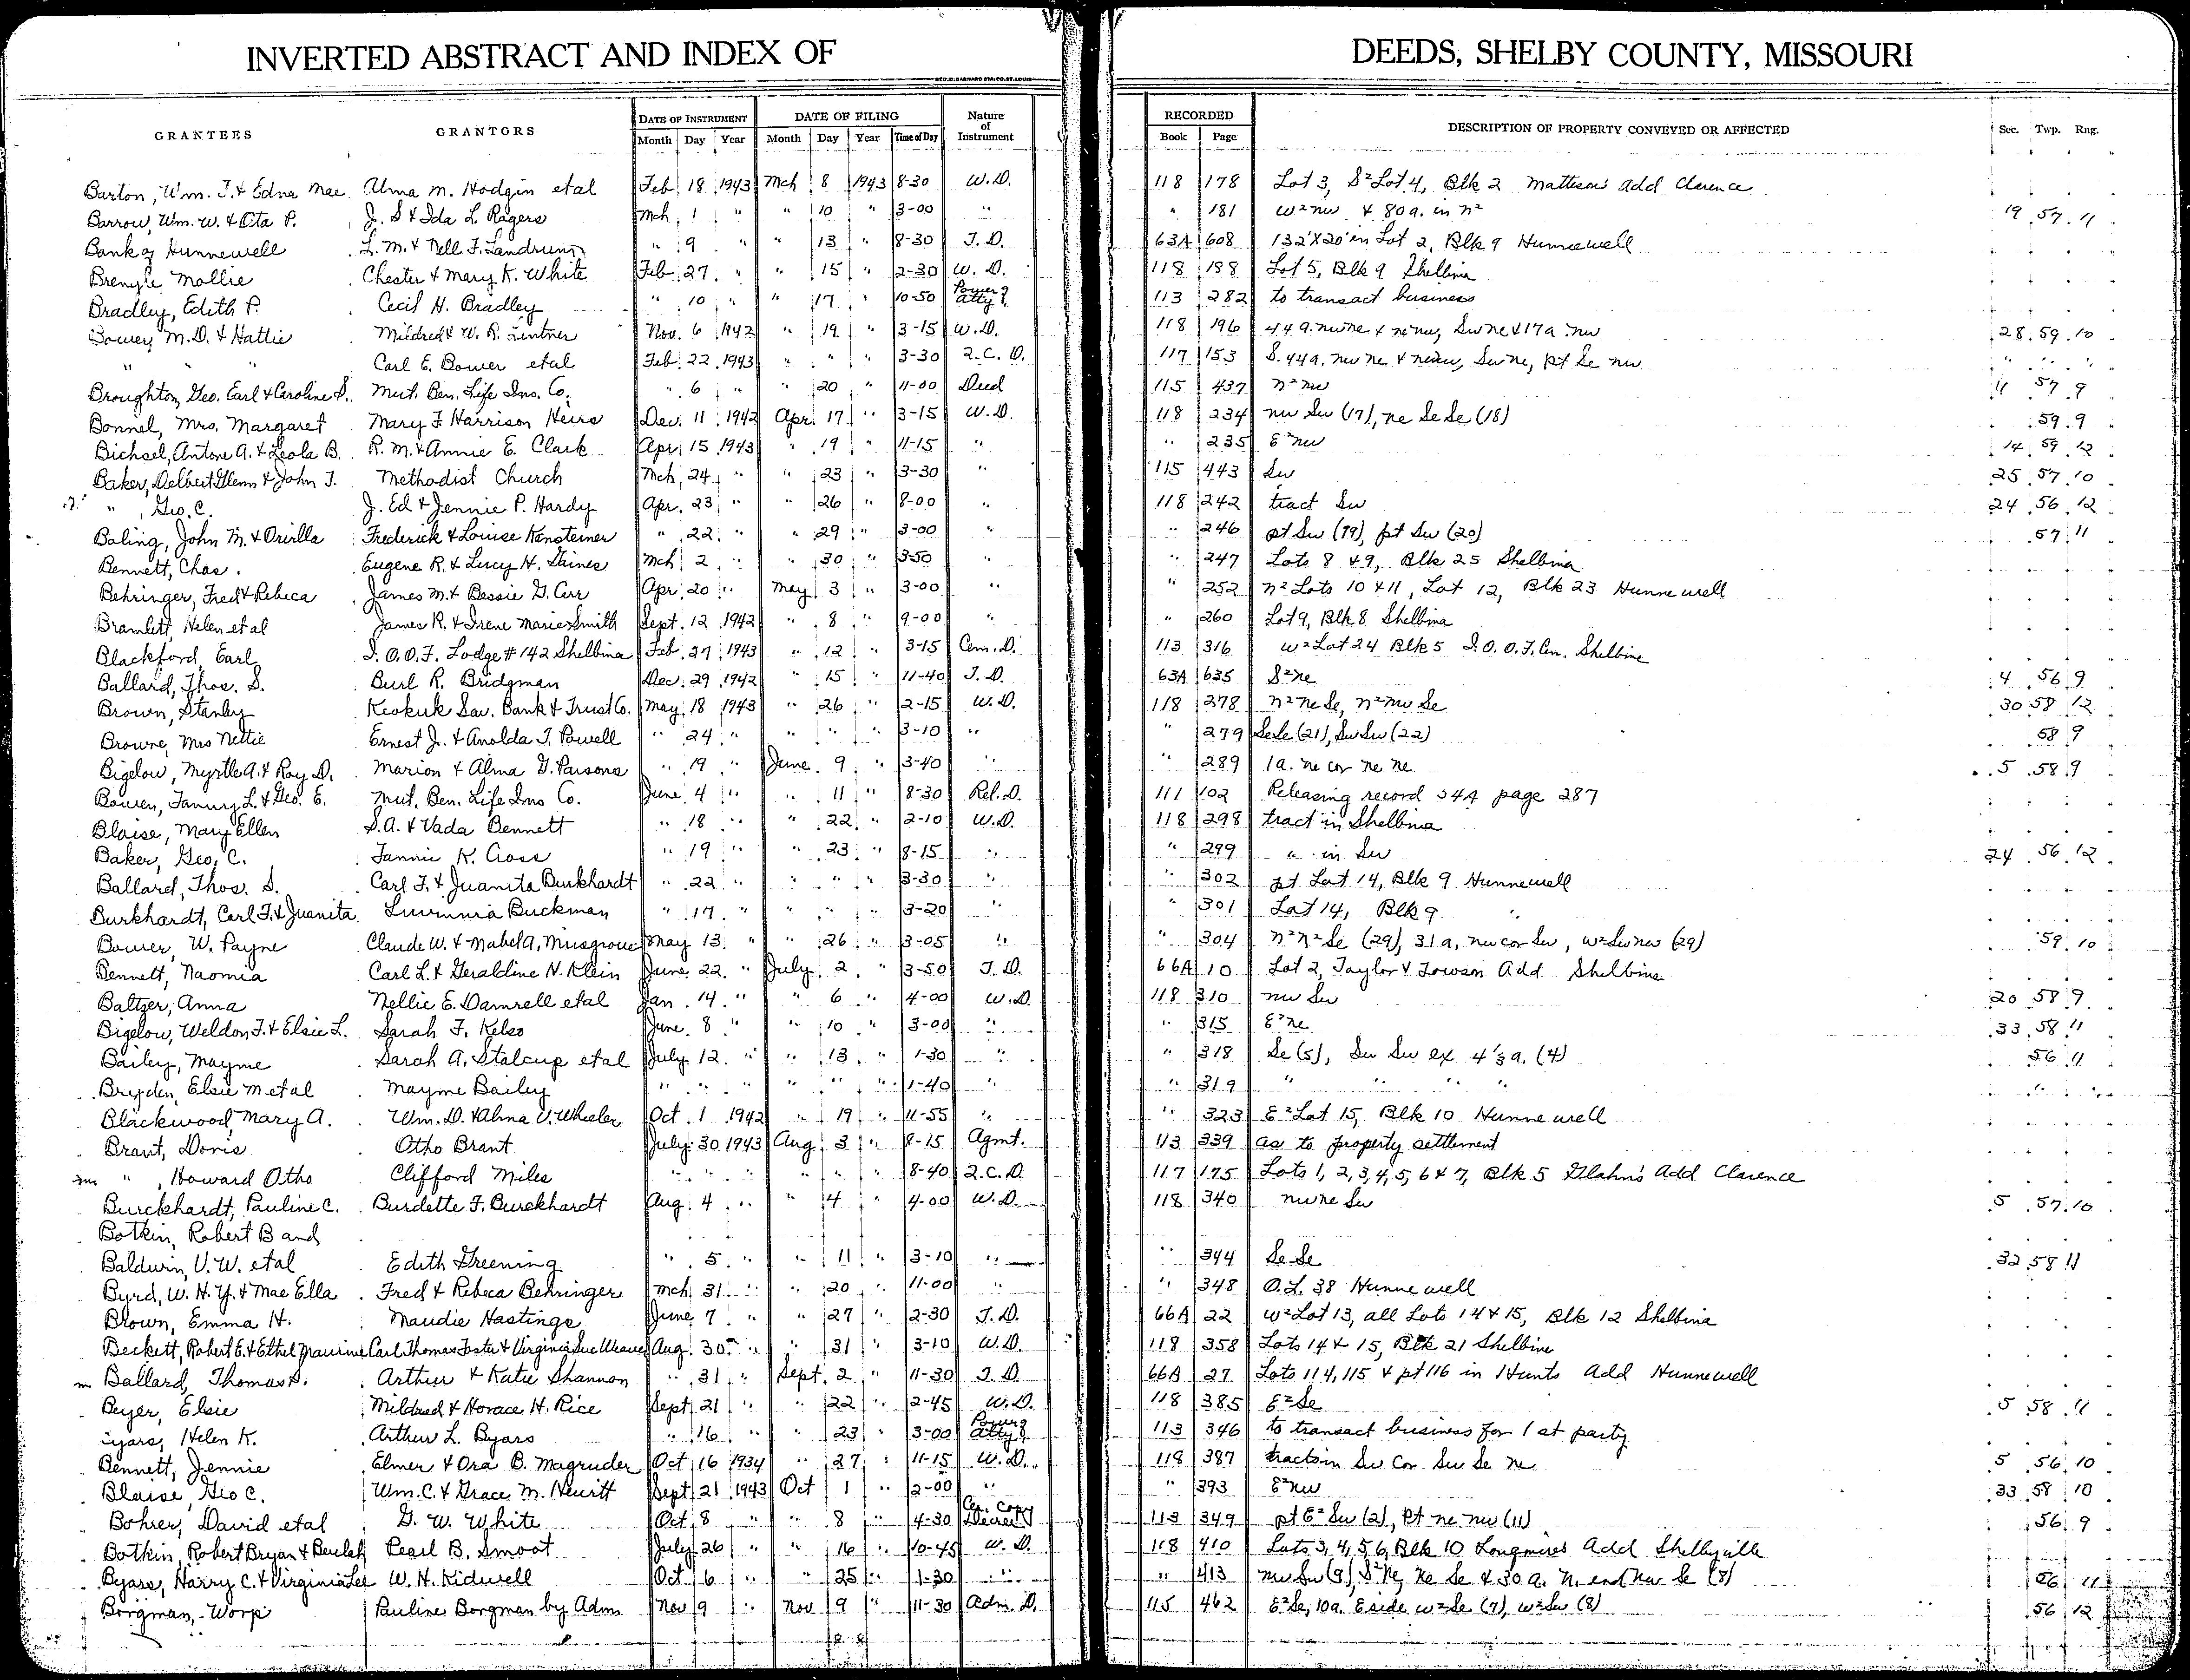 INVERTED ABSTRACT AND INDEX OF DEEDS, SHELBY COUNTY, MISSOURI
GEO. D. BARNARD STA. CO. ST. LOUIS
GRANTEES GRANTORS DATE OF INSTRUMENT DATE OF FILING Nature of Instrument RECORDED DESCRIPTION OF PROPERTY CONVEYED OR AFFECTED Sec. Twp. Rng.
Month Day Year Month Day Year Time of Day Book Page
Barton, Wm. T. & Edna Mae Alma M. Hodgin etal Feb 18 1943 Mch 8 1943 8-30 W.D. 118 178 Lot 3, S² Lot 4, Blk 2 Mattison's Add Clarence
Barrow, Wm. W. & Ota P. J. S & Ida L. Rogers Mch 1 " " 10 " 3-00 " " 181 W² nw & 80a. in n² 19 57 11
Bank of Hunnewell L. M. & Nell F. Landrum " 9 " " 13 " 8-30 T. D. 63A 608 132'X20' in Lot 2, Blk 9 Hunnewell
Brengle, Mollie Chester & Mary K. White Feb 27 " " 15 " 2-30 W. D. 118 188 Lot 5, Blk 9 Shelbina
Bradley, Edith P. Cecil H. Bradley " 10 " " 17 " 10-50 Power of Atty 113 282 to transact business
Bower, M. D. & Hattie Mildred & W. R. Lentner Nov. 6 1942 " 19 " 3-15 W.D. 118 196 44 a. nw ne & ne nw, Sw ne & 17a nw 28 59 10
" " Carl E. Bower etal Feb 22 1943 " " " 3-30 Q. C. D. 117 153 S. 44a. nw ne & ne nw, Sw ne, pt Se nw " " "
Broughton, Geo. Earl & Caroline S. Mut. Ben. Life Ins. Co. " 6 " " 20 " 11-00 Deed 115 437 n² nw 11 57 9
Bonnel, Mrs. Margaret Mary F Harrison Heirs Dec. 11 1942 Apr. 17 " 3-15 W.D. 118 234 nw Sw (17), ne Se Se (18) 59 9
Bichsel, Antone A. & Leola B. R. M. & Annie E. Clark Apr 15 1943 " 19 " 11-15 " " 235 E² nw 14 59 12
Baker, Delbert Glenn & John T. Methodist Church Mch 24 " " 23 " 3-30 " 115 443 Sw 25 57 10
" , Geo. C. J. Ed & Jennie P. Hardy Apr. 23 " " 26 " 8-00 " 118 242 tract Sw 24 56 12
Boling, John M. & Orvilla Frederick & Louise Kensteiner " 22 " " 29 " 3-00 " " 246 pt Sw (19), pt Sw (20) 57 11
Bennett, Chas. Eugene R. & Lucy H. Gaines Mch 2 " " 30 " 3-50 " " 247 Lots 8 & 9, Blk 25 Shelbina
Behringer, Fred & Rebeca James M. & Bessie G. Carr Apr 20 " May 3 " 3-00 " " 252 n² Lots 10 & 11, Lot 12, Blk 23 Hunnewell
Bramlett, Helen etal James R. & Irene Marie Smith Sept. 12 1942 " 8 " 9-00 " " 260 Lot 9, Blk 8 Shelbina
Blackford, Earl I. O. O. F. Lodge #142 Shelbina Feb. 27 1943 " 12 " 3-15 Cem. D. 113 316 W² Lot 24 Blk 5 I. O. O. F. Cem. Shelbina
Ballard, Thos. S. Burl R. Bridgman Dec. 29 1942 " 15 " 11-40 T. D. 63A 635 S² ne 4 56 9
Brown, Stanly Keokuk Sav. Bank & Trust Co. May 18 1943 " 26 " 2-15 W. D. 118 278 n² ne Se, n² nw Se 30 58 12
Browne, Mrs Nettie Ernest J. & Anolda T. Powell " 24 " " " " 3-10 " " 279 Se Se (21), Sw Sw (22) 58 9
Bigelow, Myrtle A. & Roy D. Marion & Alma G. Parsons " 19 " June 9 " 3-40 " " 289 1a. ne cor ne ne 5 58 9
Bowen, Fanny L. & Geo. E. Mut. Ben. Life Ins Co. June 4 " " 11 " 8-30 Rel. D. 111 102 Releasing record 54A page 287
Blaise, Mary Ellen S. A. & Vada Bennett " 18 " " 22 " 2-10 W.D. 118 298 tract in Shelbina
Baker, Geo. C. Fannie K. Cross " 19 " " 23 " 8-15 " " 299 " in Sw 24 56 12
Ballard, Thos. S. Carl F. & Juanita Burkhardt " 22 " " " " 3-30 " " 302 pt Lot 14, Blk 9 Hunnewell
Burkhardt, Carl F. & Juanita Luvinnia Buckman " 17 " " " " 3-20 " 301 Lot 14, Blk 9 "
Bower, W. Payne Claude W. & Mabel A. Musgrove May 13 " " 26 " 3-05 " " 304 n² n² Se (29), 31a, nw cor Sw, W² Sw nw (29) 59 10
Bennett, Naomia Carl L. & Geraldine N. Klein June 22 " July 2 " 3-50 T. D. 66A 10 Lot 2, Taylor & Towson Add Shelbina
Baltzer, Anna Nellie E. Damrell etal Jan 14 " " 6 " 4-00 W.D. 118 310 nw Sw 20 58 9
Bigelow, Weldon F. & Elsie L. Sarah F. Kelso June 8 " " 10 " 3-00 " " 315 E² ne 33 58 11
Bailey, Mayme Sarah A. Stalcup etal July 12 " " 13 " 1-30 " " 318 Se (5), Sw Sw ex 4⅓ a. (4) 56 11
Bryden, Elsie M etal Mayme Bailey " " " " " " 1-40 " " 319 " " " " " "
Blackwood, Mary A. Wm. D. & Alma V. Wheeler Oct 1 1942 " 19 " 11-55 " " 323 E² Lot 15, Blk 10 Hunnewell
Brant, Doris Otho Brant July 30 1943 Aug 3 " 8-15 Agmt. 113 339 as to property settlement
" , Howard Otho Clifford Miles " " " " " " 8-40 Q.C.D. 117 175 Lots 1, 2, 3, 4, 5, 6 & 7, Blk 5 Glahn's Add Clarence
Burckhardt, Pauline C. Burdette F. Burckhardt Aug 4 " " 4 " 4-00 W.D. 118 340 nw ne Sw 5 57 10
Botkin, Robert B and
Baldwin, V. W. etal Edith Greening " 5 " " 11 " 3-10 " " 344 Se Se 32 58 11
Byrd, W. H. Y. & Mae Ella Fred & Rebeca Behringer Mch 31 " " 20 " 11-00 " " 348 O. L. 38 Hunnewell
Brown, Emma H. Maudie Hastings June 7 " " 27 " 2-30 T. D. 66A 22 W² Lot 13, all Lots 14 & 15, Blk 12 Shelbina
Beckett, Robert E. & Ethel Maurine Carl Thomas Foster & Virginia Sue Weaver Aug. 30 " " 31 " 3-10 W.D. 118 358 Lots 14 & 15, Blk 21 Shelbina
Ballard, Thomas S. Arthur & Katie Shannon " 31 " Sept. 2 " 11-30 T. D. 66A 27 Lots 114, 115 & pt 116 in Hunts Add Hunnewell
Beyer, Elsie Mildred & Horace H. Rice Sept 21 " " 22 " 2-45 W.D. 118 385 E² Se 5 58 11
Byars, Helen K. Arthur L. Byars " 16 " " 23 " 3-00 Power of Atty 113 346 to transact business for 1st party
Bennett, Jennie Elmer & Ora B. Magruder Oct 16 1934 " 27 " 11-15 W.D. 118 387 tracts in Sw Cor Sw Se ne 5 56 10
Blaise, Geo C. Wm. C. & Grace M. Hewitt Sept 21 1943 Oct 1 " 2-00 " " 393 E² nw 33 58 10
Bohrer, David etal G. W. White Oct 8 " " 8 " 4-30 Cer. copy Decree 113 349 pt E² Sw (2), Pt ne nw (11) 56 9
Botkin, Robert Bryan & Beulah Pearl B. Smoot July 26 " " 16 " 10-45 W. D. 118 410 Lots 3, 4, 5, 6, Blk 10 Longmires Add Shelbyville
Byars, Harry C. & Virginia Lee W. H. Kidwell Oct 6 " " 25 " 1-30 " " 413 nw Sw (9), S² ne, ne Se & 30 a. n. end nw Se (8) 56 11
Borgman, Worp Pauline Borgman by Adm Nov 9 " Nov 9 " 11-30 Adm. D. 115 462 E² Se, 10a. E side W² Se (7), W² Sw (8) 56 12